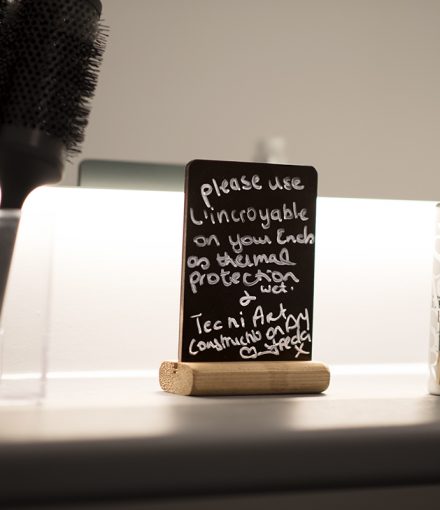 please use
L'incroyable
on your Ends
as thermal
protection
wet.
&
Tecni Art
Constructor on dry
x